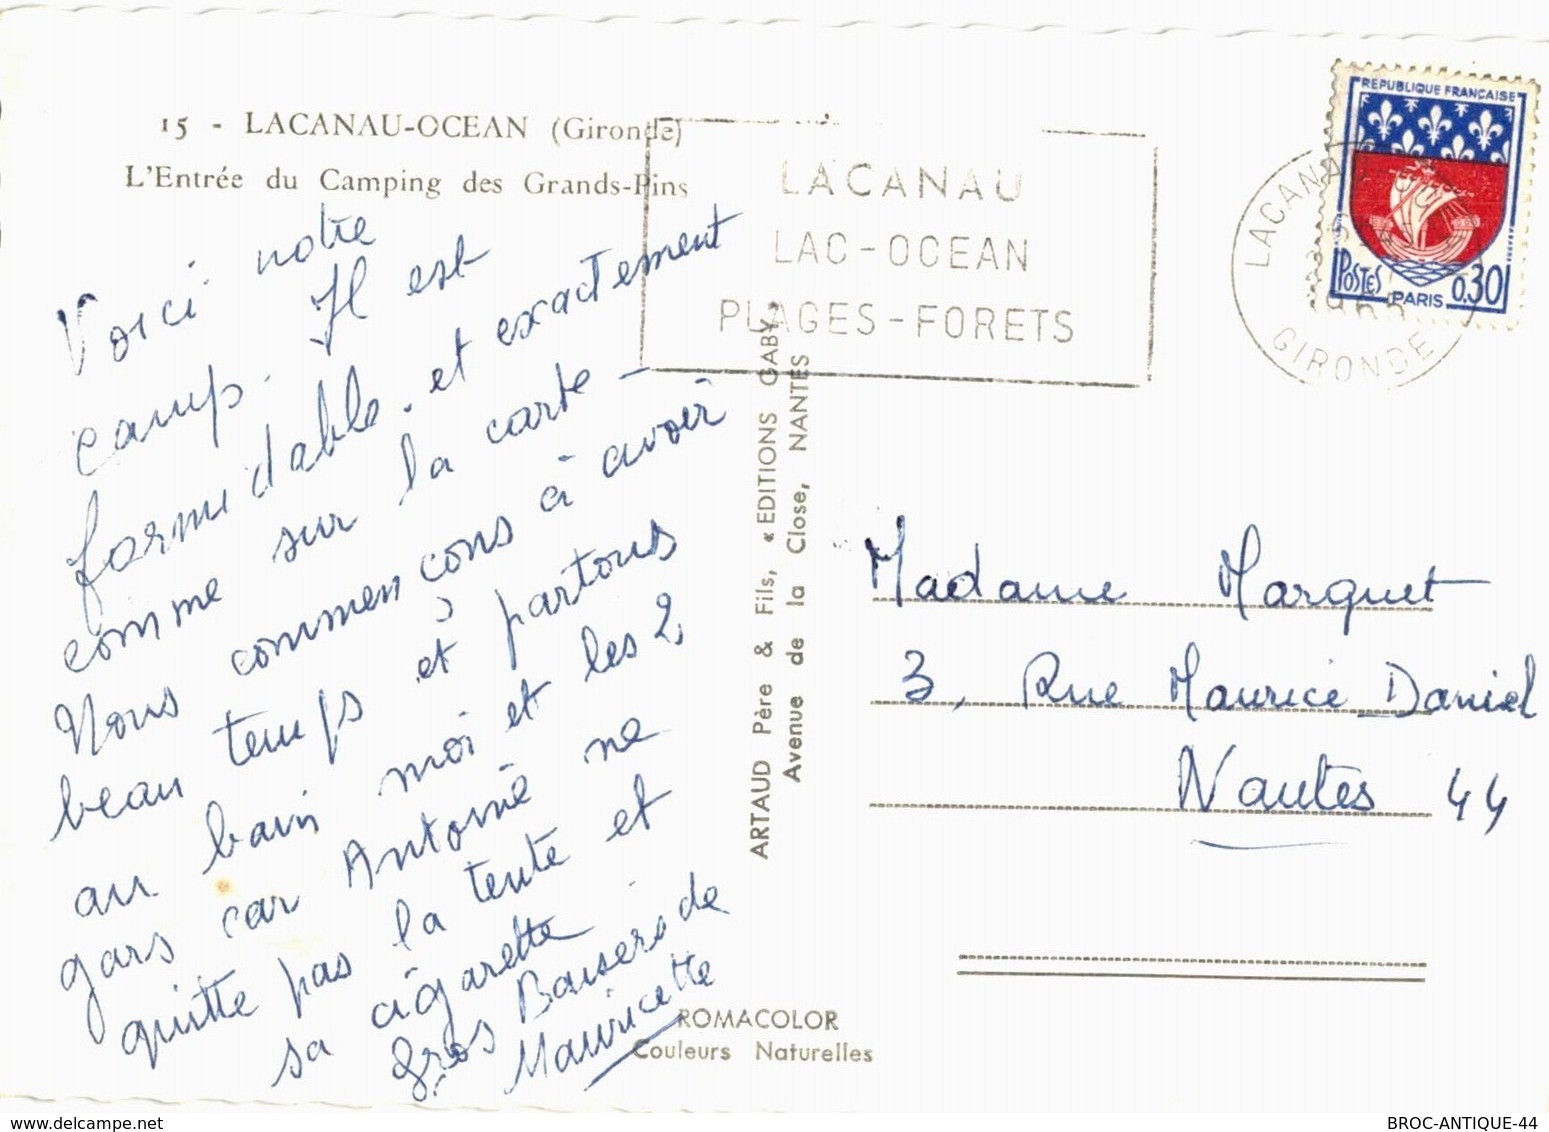 15 - LACANAU-OCEAN (Gironde)
L'Entrée du Camping des Grands-Pins
Voici notre
camp. Il est
formidable. et exactement
comme sur la carte -
Nous commençons à avoir
beau temps et partons
au bain moi et les 2
gars car Antoine ne
quitte pas la tente et
sa cigarette
Gros Baisers de
Mauricette
ARTAUD Père & Fils, « EDITIONS GABY »
Avenue de la Close, NANTES
ROMACOLOR
Couleurs Naturelles
LACANAU
LAC-OCEAN
PLAGES-FORETS
LACANAU
GIRONDE
REPUBLIQUE FRANÇAISE
POSTES
PARIS
0,30
Madame Marquet
3, Rue Maurice Daniel
Nantes 44
BROC-ANTIQUE-44